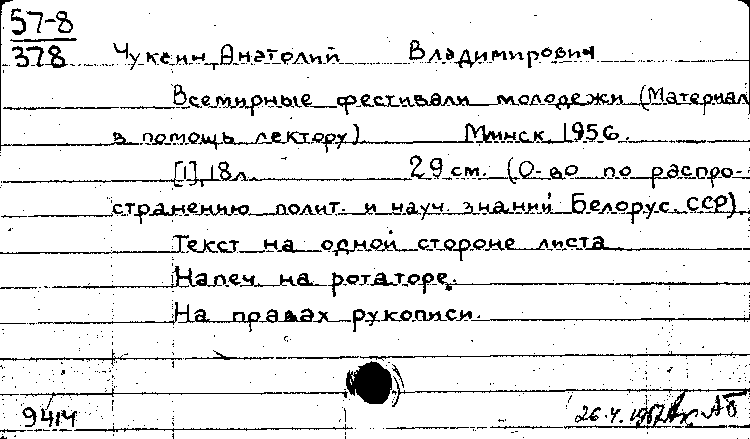 57-8
378
Чукеин, Анатолий Владимирович
Всемирные фестивали молодежи (Материал
в помощь лектору). Минск, 1956.
[1], 18 л. 29 см. (О-во по распро-
странению полит. и науч. знаний Белорус. ССР).
Текст на одной стороне листа.
Напеч. на ротаторе.
На правах рукописи.
9414